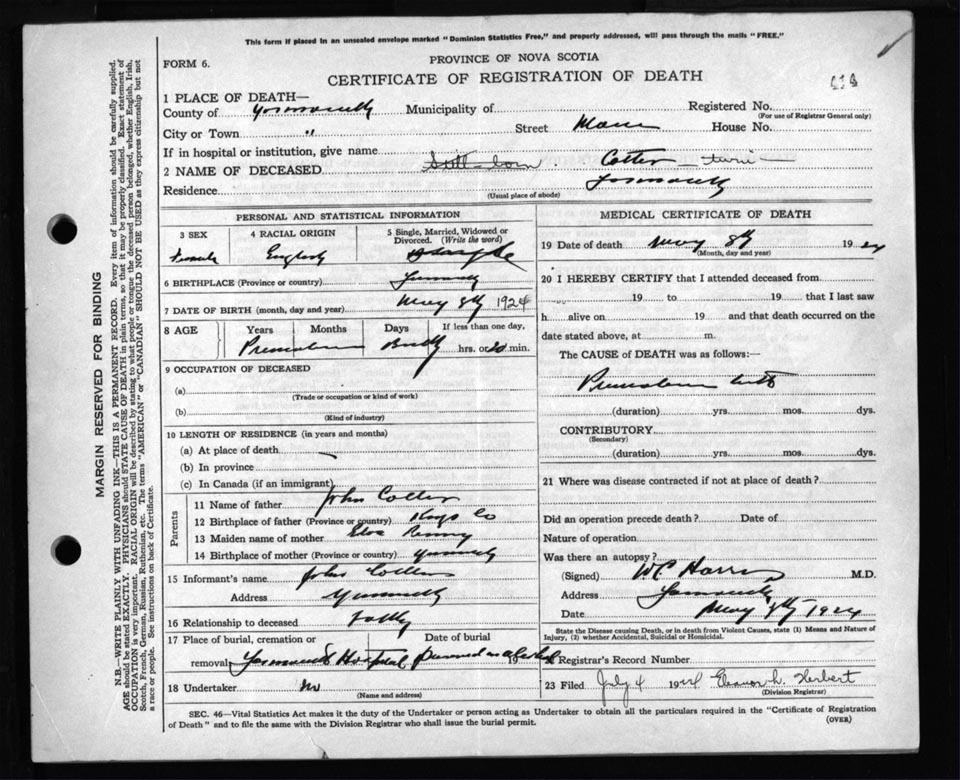 This form if placed in an unsealed envelope marked "Dominion Statistics Free," and properly addressed, will pass through the mails "FREE."
FORM 6.
PROVINCE OF NOVA SCOTIA
CERTIFICATE OF REGISTRATION OF DEATH
1 PLACE OF DEATH—
County of Yarmouth Municipality of Registered No.
(For use of Registrar General only)
City or Town " Street Main House No.
If in hospital or institution, give name
2 NAME OF DECEASED Still-born Cotter - twin -
Residence Yarmouth
(Usual place of abode)
PERSONAL AND STATISTICAL INFORMATION
3 SEX 4 RACIAL ORIGIN 5 Single, Married, Widowed or Divorced. (Write the word)
Female English Single
6 BIRTHPLACE (Province or country) Yarmouth
7 DATE OF BIRTH (month, day and year) May 8th 1924
8 AGE Years Months Days If less than one day,
Premature hrs. or 20 min.
9 OCCUPATION OF DECEASED
(a)
(Trade or occupation or kind of work)
(b)
(Kind of industry)
10 LENGTH OF RESIDENCE (in years and months)
(a) At place of death
(b) In province
(c) In Canada (if an immigrant)
Parents
11 Name of father John Cotter
12 Birthplace of father (Province or country) Kings Co
13 Maiden name of mother Kenny
14 Birthplace of mother (Province or country) Yarmouth
15 Informant's name John Cotter
Address Yarmouth
16 Relationship to deceased Father
17 Place of burial, cremation or removal Date of burial
Yarmouth Hospital preserved in alcohol 19
18 Undertaker no
(Name and address)
MEDICAL CERTIFICATE OF DEATH
19 Date of death May 8th 1924
(Month, day and year)
20 I HEREBY CERTIFY that I attended deceased from
19 to 19 that I last saw
h alive on 19 and that death occurred on the
date stated above, at m.
The CAUSE of DEATH was as follows:—
Premature birth
(duration) yrs. mos. dys.
CONTRIBUTORY
(Secondary)
(duration) yrs. mos. dys.
21 Where was disease contracted if not at place of death?
Did an operation precede death? Date of
Nature of operation
Was there an autopsy?
(Signed) WC Harris M.D.
Address Yarmouth
Date May 8th 1924
State the Disease causing Death, or in death from Violent Causes, state (1) Means and Nature of
Injury, (2) whether Accidental, Suicidal or Homicidal.
22 Registrar's Record Number
23 Filed July 4 1924 Eleanor L. Herbert
(Division Registrar)
SEC. 46—Vital Statistics Act makes it the duty of the Undertaker or person acting as Undertaker to obtain all the particulars required in the "Certificate of Registration
of Death" and to file the same with the Division Registrar who shall issue the burial permit. (OVER)
MARGIN RESERVED FOR BINDING
N.B.—WRITE PLAINLY WITH UNFADING INK—THIS IS A PERMANENT RECORD. Every item of information should be carefully supplied.
AGE should be stated EXACTLY. PHYSICIANS should STATE CAUSE OF DEATH in plain terms, so that it may be properly classified. Exact statement of
OCCUPATION is very important. RACIAL ORIGIN will be described by stating to what people or tongue the deceased person belonged, whether English, Irish,
Scotch, French, German, Russian, Ruthenian, etc. The terms "AMERICAN" or "CANADIAN" SHOULD NOT BE USED as they express citizenship but not
a race or people. See instructions on back of Certificate.